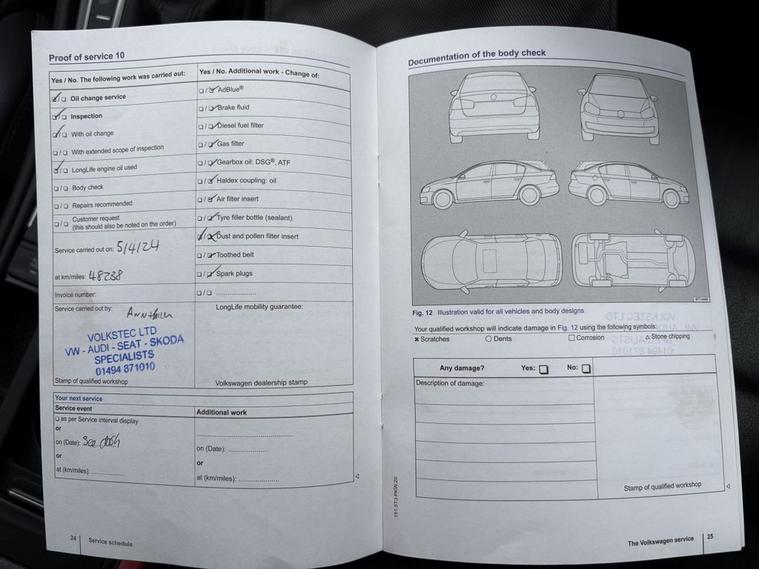 Proof of service 10
Yes / No. The following work was carried out:
☑/☐ Oil change service
☑/☐ Inspection
☑/☐ With oil change
☐/☐ With extended scope of inspection
☑/☐ LongLife engine oil used
☐/☐ Body check
☐/☐ Repairs recommended
☐/☐ Customer request
(this should also be noted on the order)
Service carried out on: 5/4/24
at km/miles: 48238
Invoice number:
Service carried out by:
VOLKSTEC LTD
VW - AUDI - SEAT - SKODA
SPECIALISTS
01494 871010
Stamp of qualified workshop
Yes / No. Additional work - Change of:
☐/☑ AdBlue®
☐/☑ Brake fluid
☐/☑ Diesel fuel filter
☐/☑ Gas filter
☐/☑ Gearbox oil: DSG®, ATF
☐/☑ Haldex coupling: oil
☐/☑ Air filter insert
☐/☑ Tyre filler bottle (sealant)
☑/☒ Dust and pollen filter insert
☐/☑ Toothed belt
☐/☑ Spark plugs
☐/☐ ..............................
LongLife mobility guarantee:
Volkswagen dealership stamp
Your next service
Service event
☐ as per Service interval display
or
on (Date): See dash
or
at (km/miles): ..............
Additional work
on (Date): ..............
or
at (km/miles): ..............
24 | Service schedule
Documentation of the body check
Fig. 12 Illustration valid for all vehicles and body designs
Your qualified workshop will indicate damage in Fig. 12 using the following symbols:
× Scratches ○ Dents □ Corrosion △ Stone chipping
Any damage? Yes: ☐ No: ☐
Description of damage:
Stamp of qualified workshop
The Volkswagen service | 25